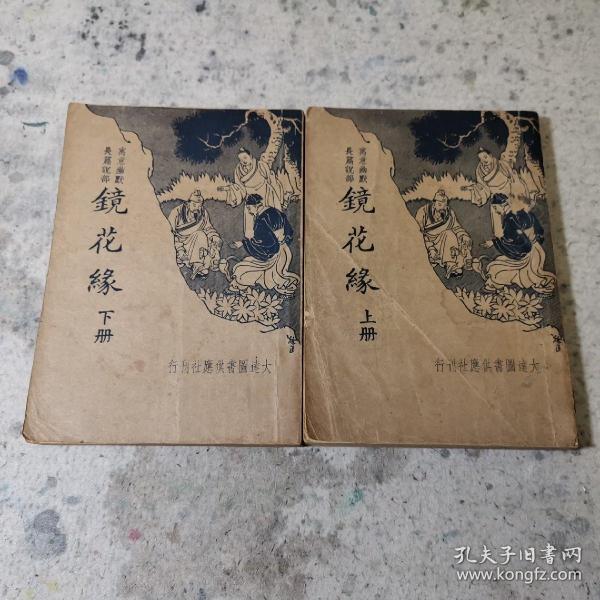 寓意幽默
長篇說部
鏡花緣
上册
大達圖書供應社刊行
寓意幽默
長篇說部
鏡花緣
下册
大達圖書供應社刊行
孔夫子旧书网
www.kongfz.com